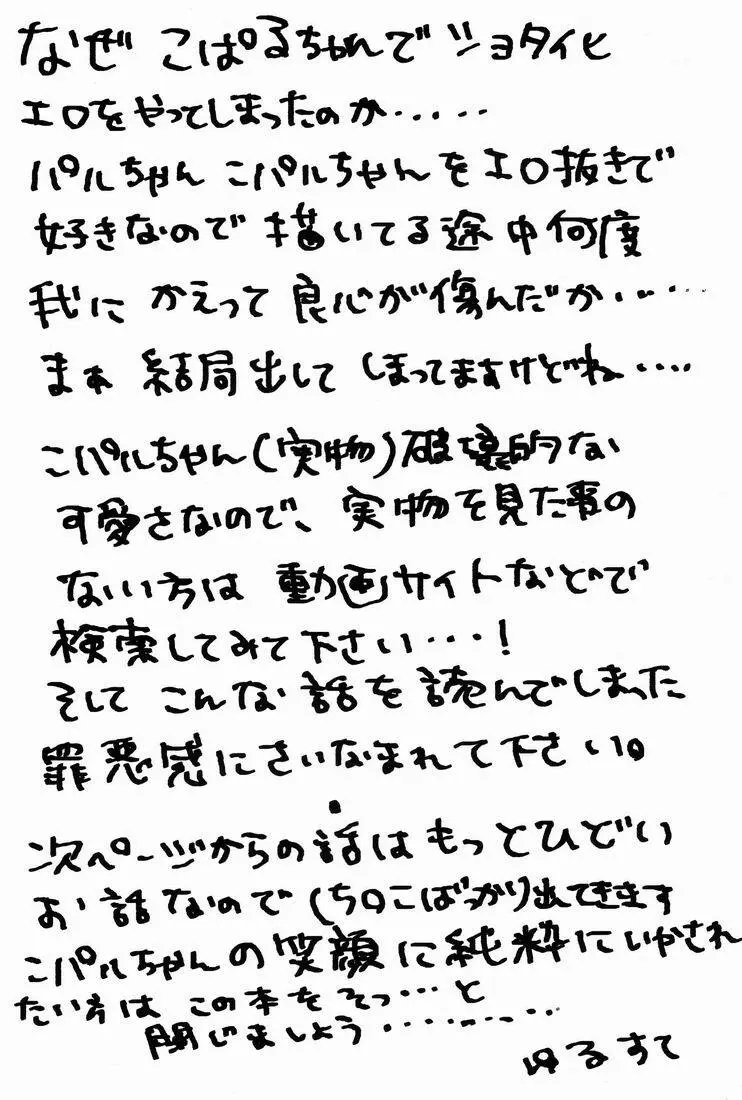 なぜ こぱるちゃんで ショタイヒ
エロをやってしまったのか.....
パルちゃん こパルちゃんをエロ抜きで
好きなので 描いてる途中何度
我に かえって 良心が傷んだか....
まぁ 結局出して しまってますけどね....
こパルちゃん(実物)破壊的な
可愛さなので、実物を見た事の
ない方は 動画サイトなどで
検索してみて下さい...!
そして こんな話を読んでしまった
罪悪感にさいなまれて下さい。
次ページからの話は もっとひどい
お話なので(ち○こばっかり出てきます
こパルちゃんの笑顔に純粋にいかされ
たい方は この本を そっ...と
閉じましょう........
ゆるすて